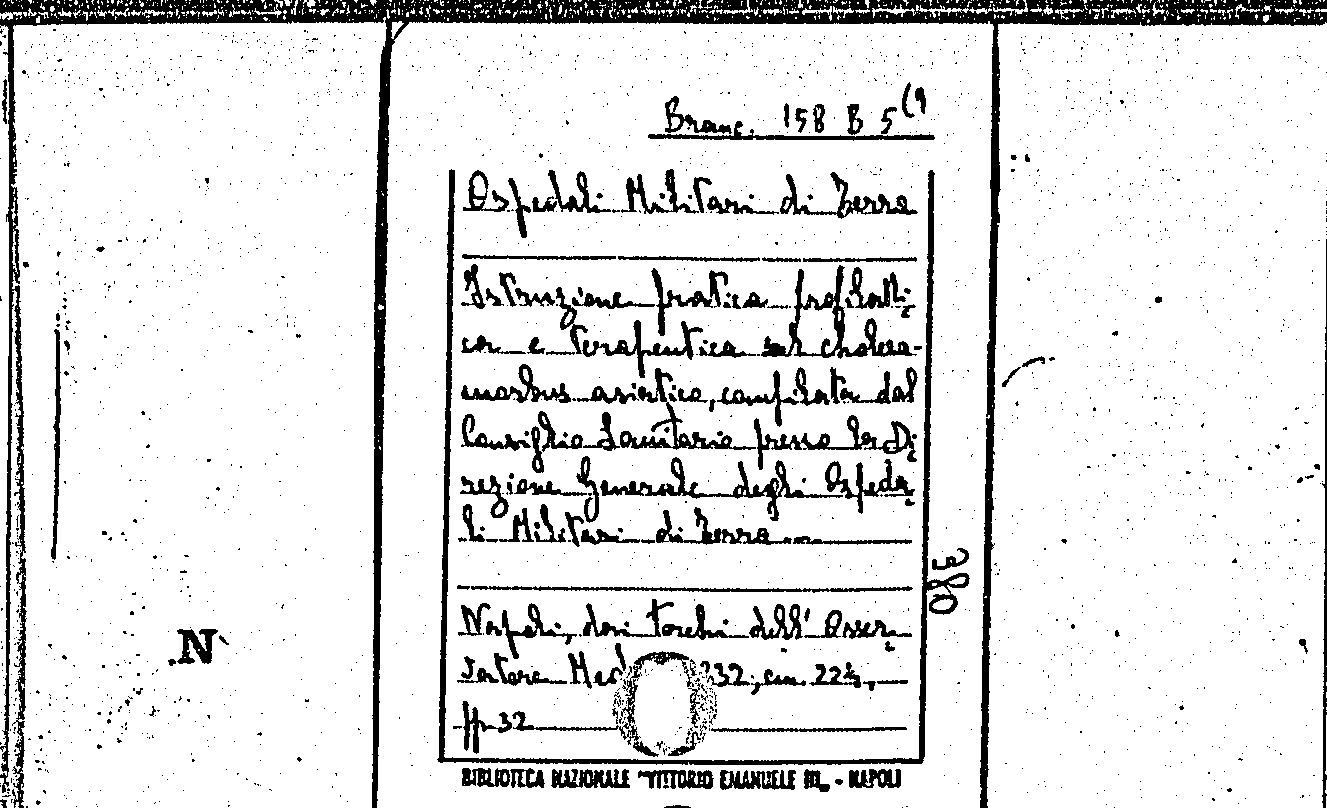 Branc. 158 B 5 (9
Ospedali Militari di Terra
Istruzione pratica profilatti-
ca e terapeutica sul cholera-
morbus asiatico, compilata dal
Consiglio Sanitario presso la Di-
rezione Generale degli Ospeda-
li Militari di Terra ...
380
Napoli, dai torchi dell' Osser-
vatore Med 832, cm. 22½,
pp. 32
N
BIBLIOTECA NAZIONALE "VITTORIO EMANUELE III„ - NAPOLI